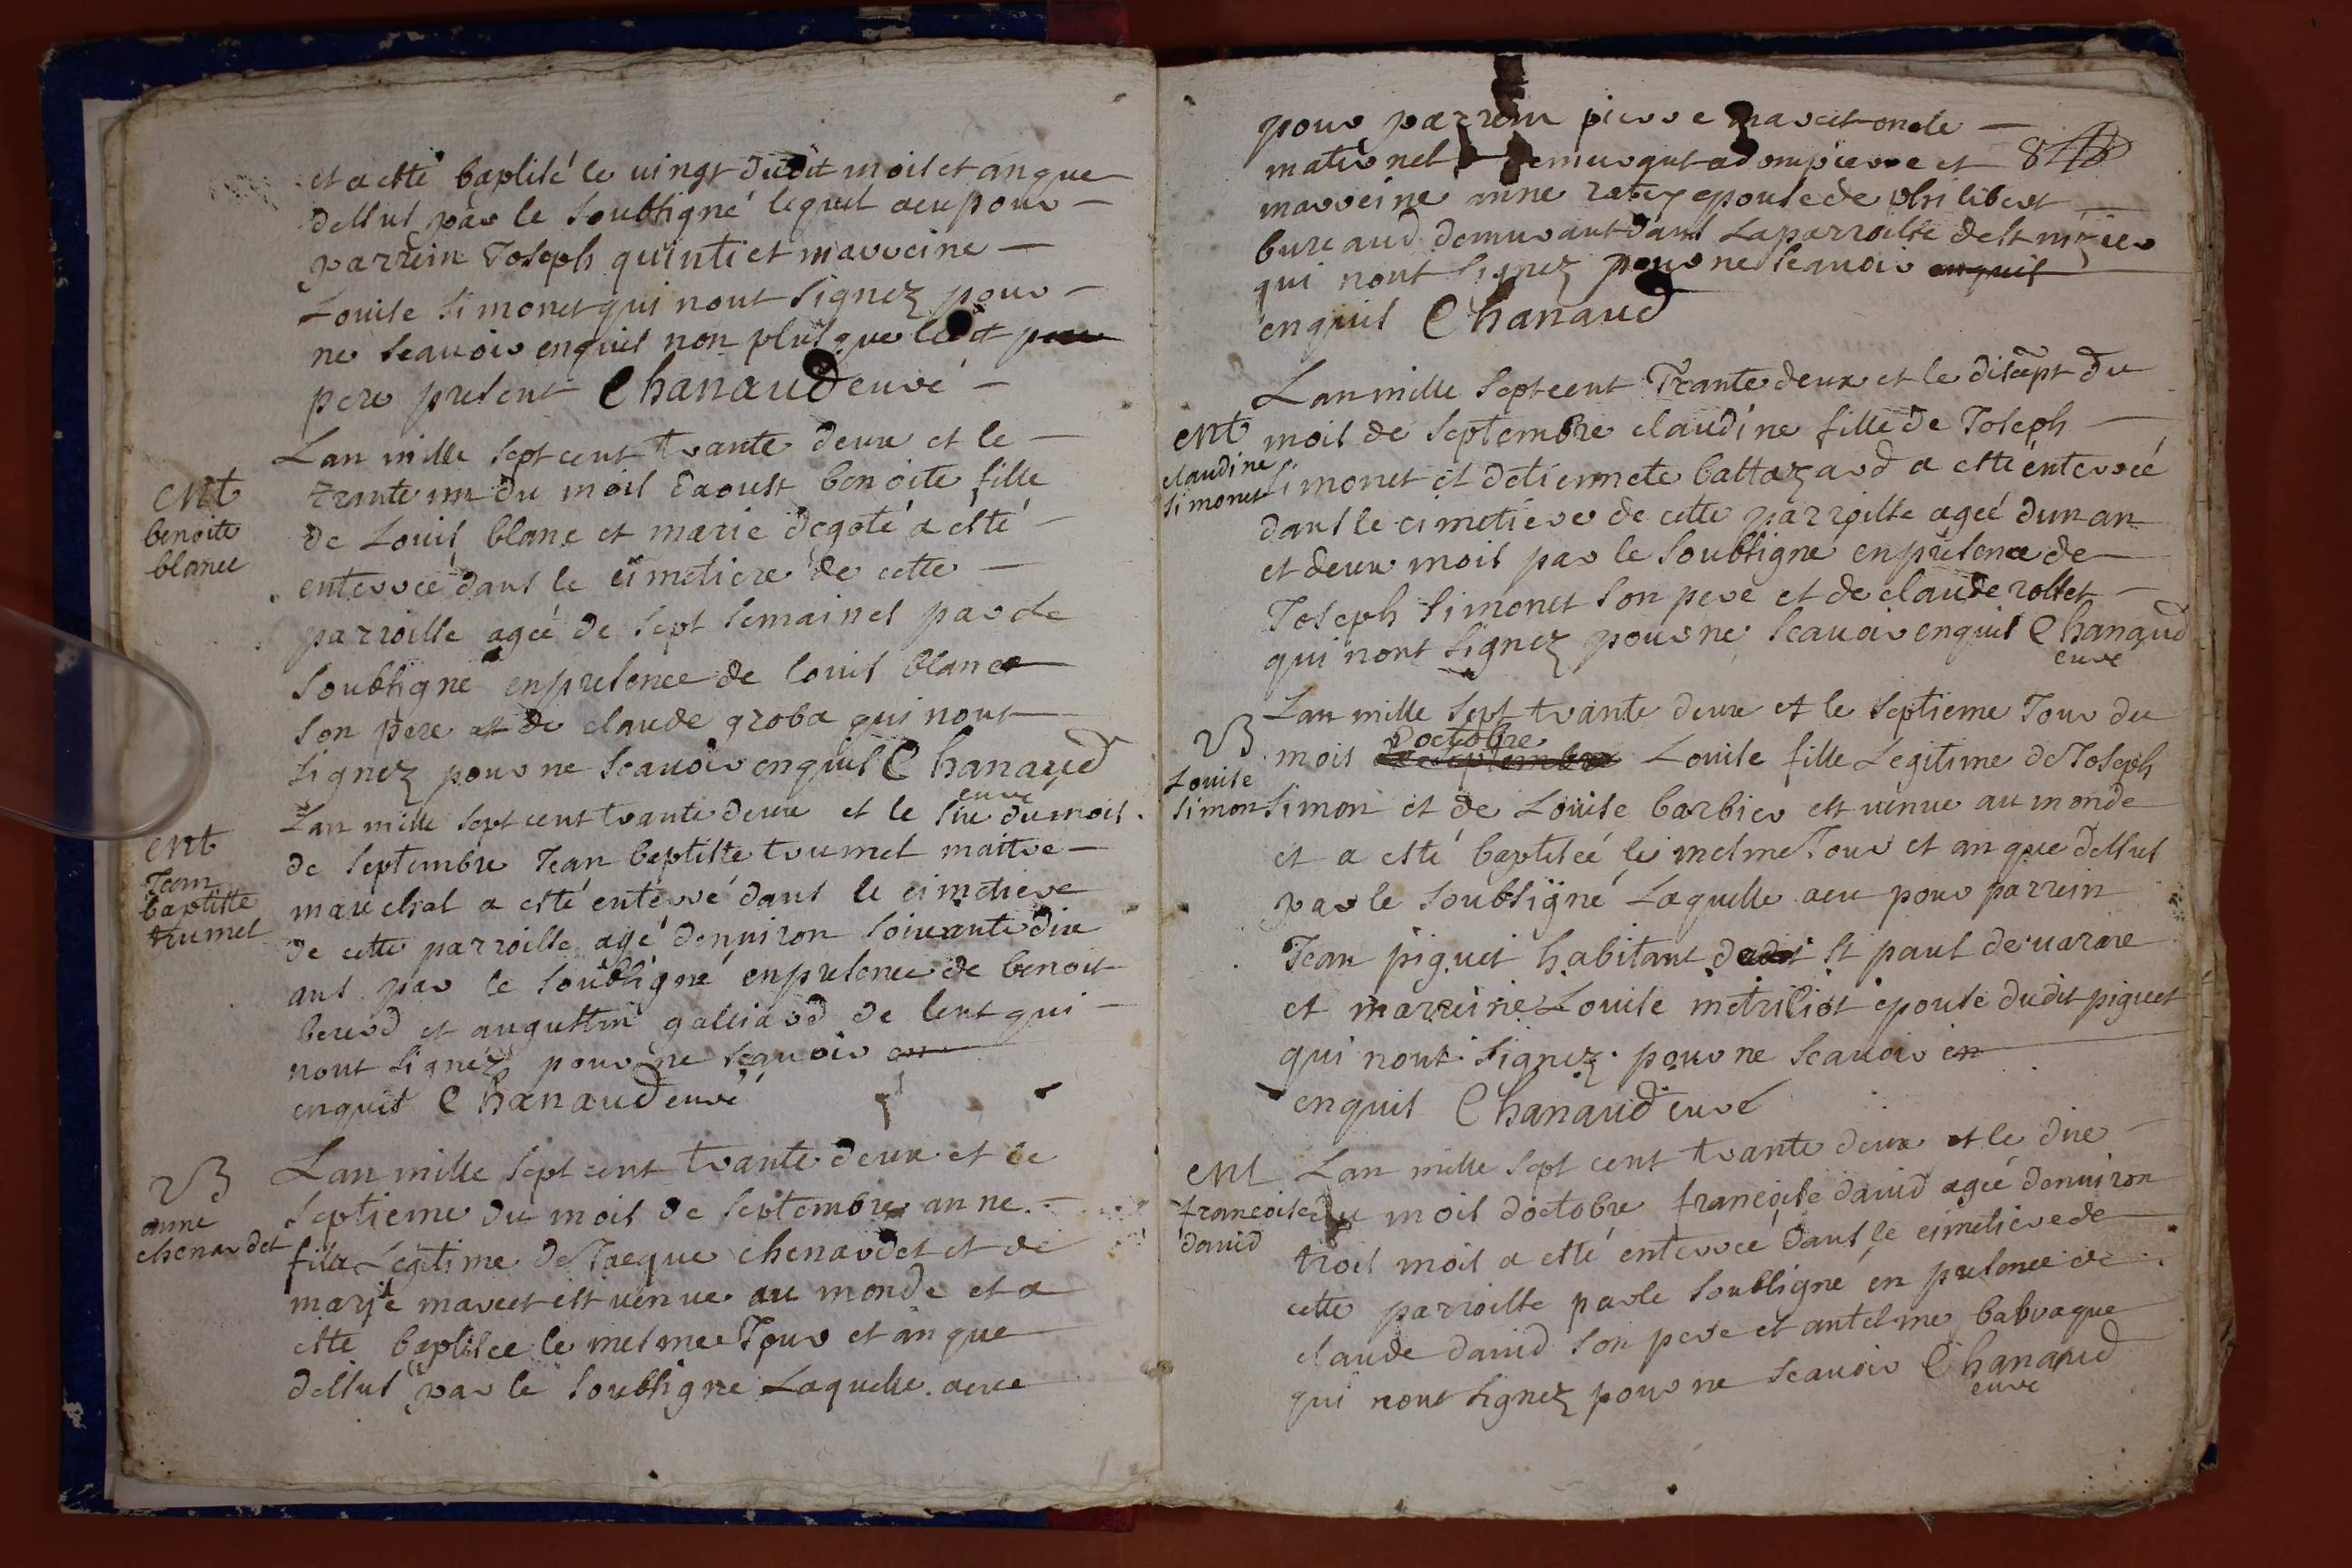 et a esté baptisé le uingt dudit mois et an que
dessus par le soubsigné lequel a eu pour
parrein Joseph quinti et marreine
Louise simonet qui nont signez pour
ne scauoir enquis non plus que ledit
pere present Chanaud curé
Lan mille sept cent trante deux et le
trante un du mois daoust benoite fille
de Louis blanc et marie degoté a esté
enterreé dans le cimetiere de cette
parroisse ageé de sept semaines par le
soubsigné en presence de louis blanc
son pere et de claude groba qui nont
signez pour ne scauoir enquis Chanaud
curé
ent
benoite
blanc
Lan mille sept cent trante deux et le six du mois
de septembre Jean baptiste trumel maitre
marechal a esté enterré dans le cimetiere
de cette parroisse agé denuiron soixante dix
ans par le soubsigné en presence de benoit
beurd et augustin galliard de lent qui
nont signez pour ne scauoir
enquis Chanaud curé
ent
Jean
baptiste
trumel
Lan mille sept cent trante deux et le
septieme du mois de septembre anne
fille Legitime de Jacque chenardet et de
marie maret est uenue au monde et a
esté baptisee le mesme Jour et an que
dessus par le soubsigne Laquelle a eue
B
anne
chenardet
pour parrein pierre maret oncle
maternel demurant a dompierre et
84
marreine anne ratey epouse de phi libert
bureaud demurant dans La parroisse de st nizier
qui nont signez pour ne scauoir enquis
enquis Chanaud
Lan mille sept cent Trante deux et le disept du
mois de septembre claudine fille de Joseph
simonet et detiennete baltazard a esté enterreé
dans le cimetiere de cette parroisse ageé dun an
et deux mois par le soubsigné en presence de
Joseph simonet son pere et de claude rollet
qui nont signez pour ne scauoir enquis Chanaud
curé
ent
claudine
simonet
Lan mille sept trante deux et le septieme Jour du
doctobre
mois de septembre Louise fille Legitime de Joseph
simon et de Louise barbier est uenue au monde
et a esté baptiseé le mesme Jour et an que dessus
par le soubsigné Laquelle a eu pour parrein
Jean piquet habitant st paul de uarare
et marreine Louise metriliot epouse dudit piquet
qui nont signez pour ne scauoir en
enquis Chanaud curé
B
Louise
simon
Lan mille sept cent trante deux et le dixe
du mois doctobre francoise dauid ageé denuiron
trois mois a esté enterreé dans le cimetiere de
cette parroisse par le soubsigné en presence de
claude dauid son pere et antelme babraque
qui nont signez pour ne scauoir Chanaud
curé
ent
francoise
dauid